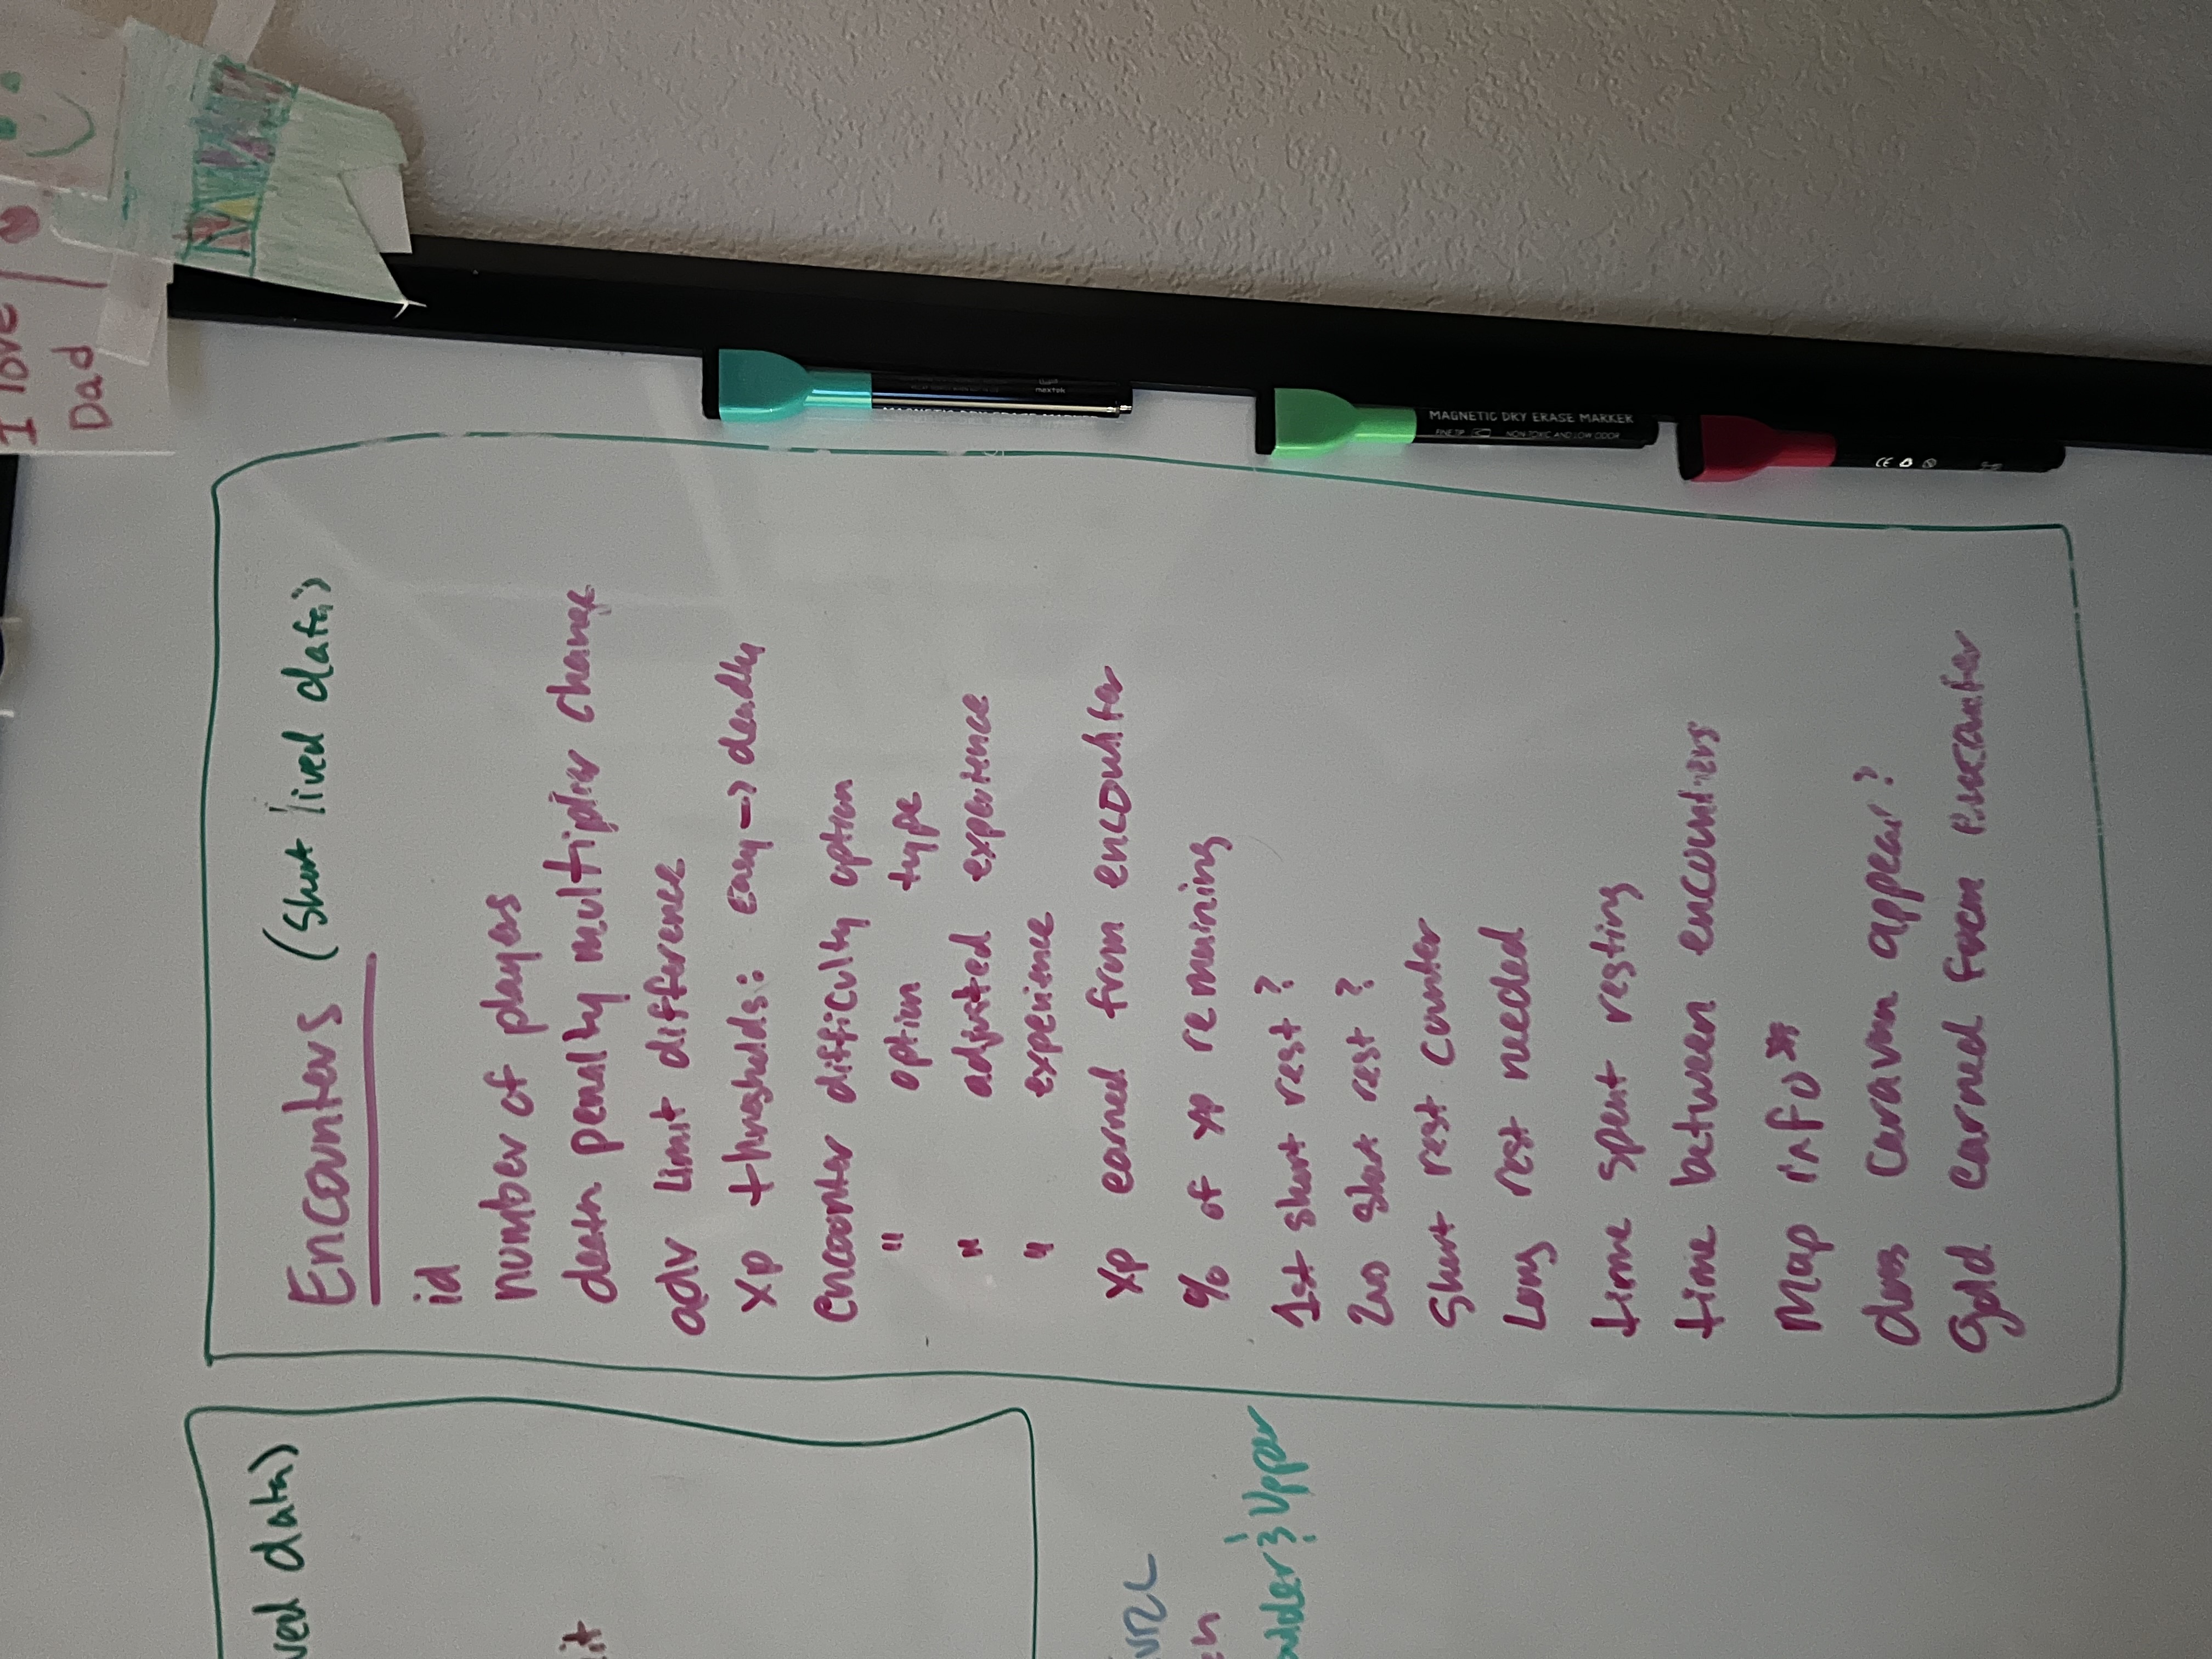 I love
Dad
ved data)
Encounters (Short lived data)
id
number of players
death penalty multiplier change
adv limit difference
it
xp thresholds: Easy -> deadly
encounter difficulty option
" option type
" adjusted experience
" experience
xp earned from encounter
% of xp remaining
& Upper
1st short rest?
2nd short rest?
Short rest counter
Long rest needed
time spent resting
time between encounters
Map info**
does caravan appear?
gold earned from encounter
MAGNETIC DRY ERASE MARKER